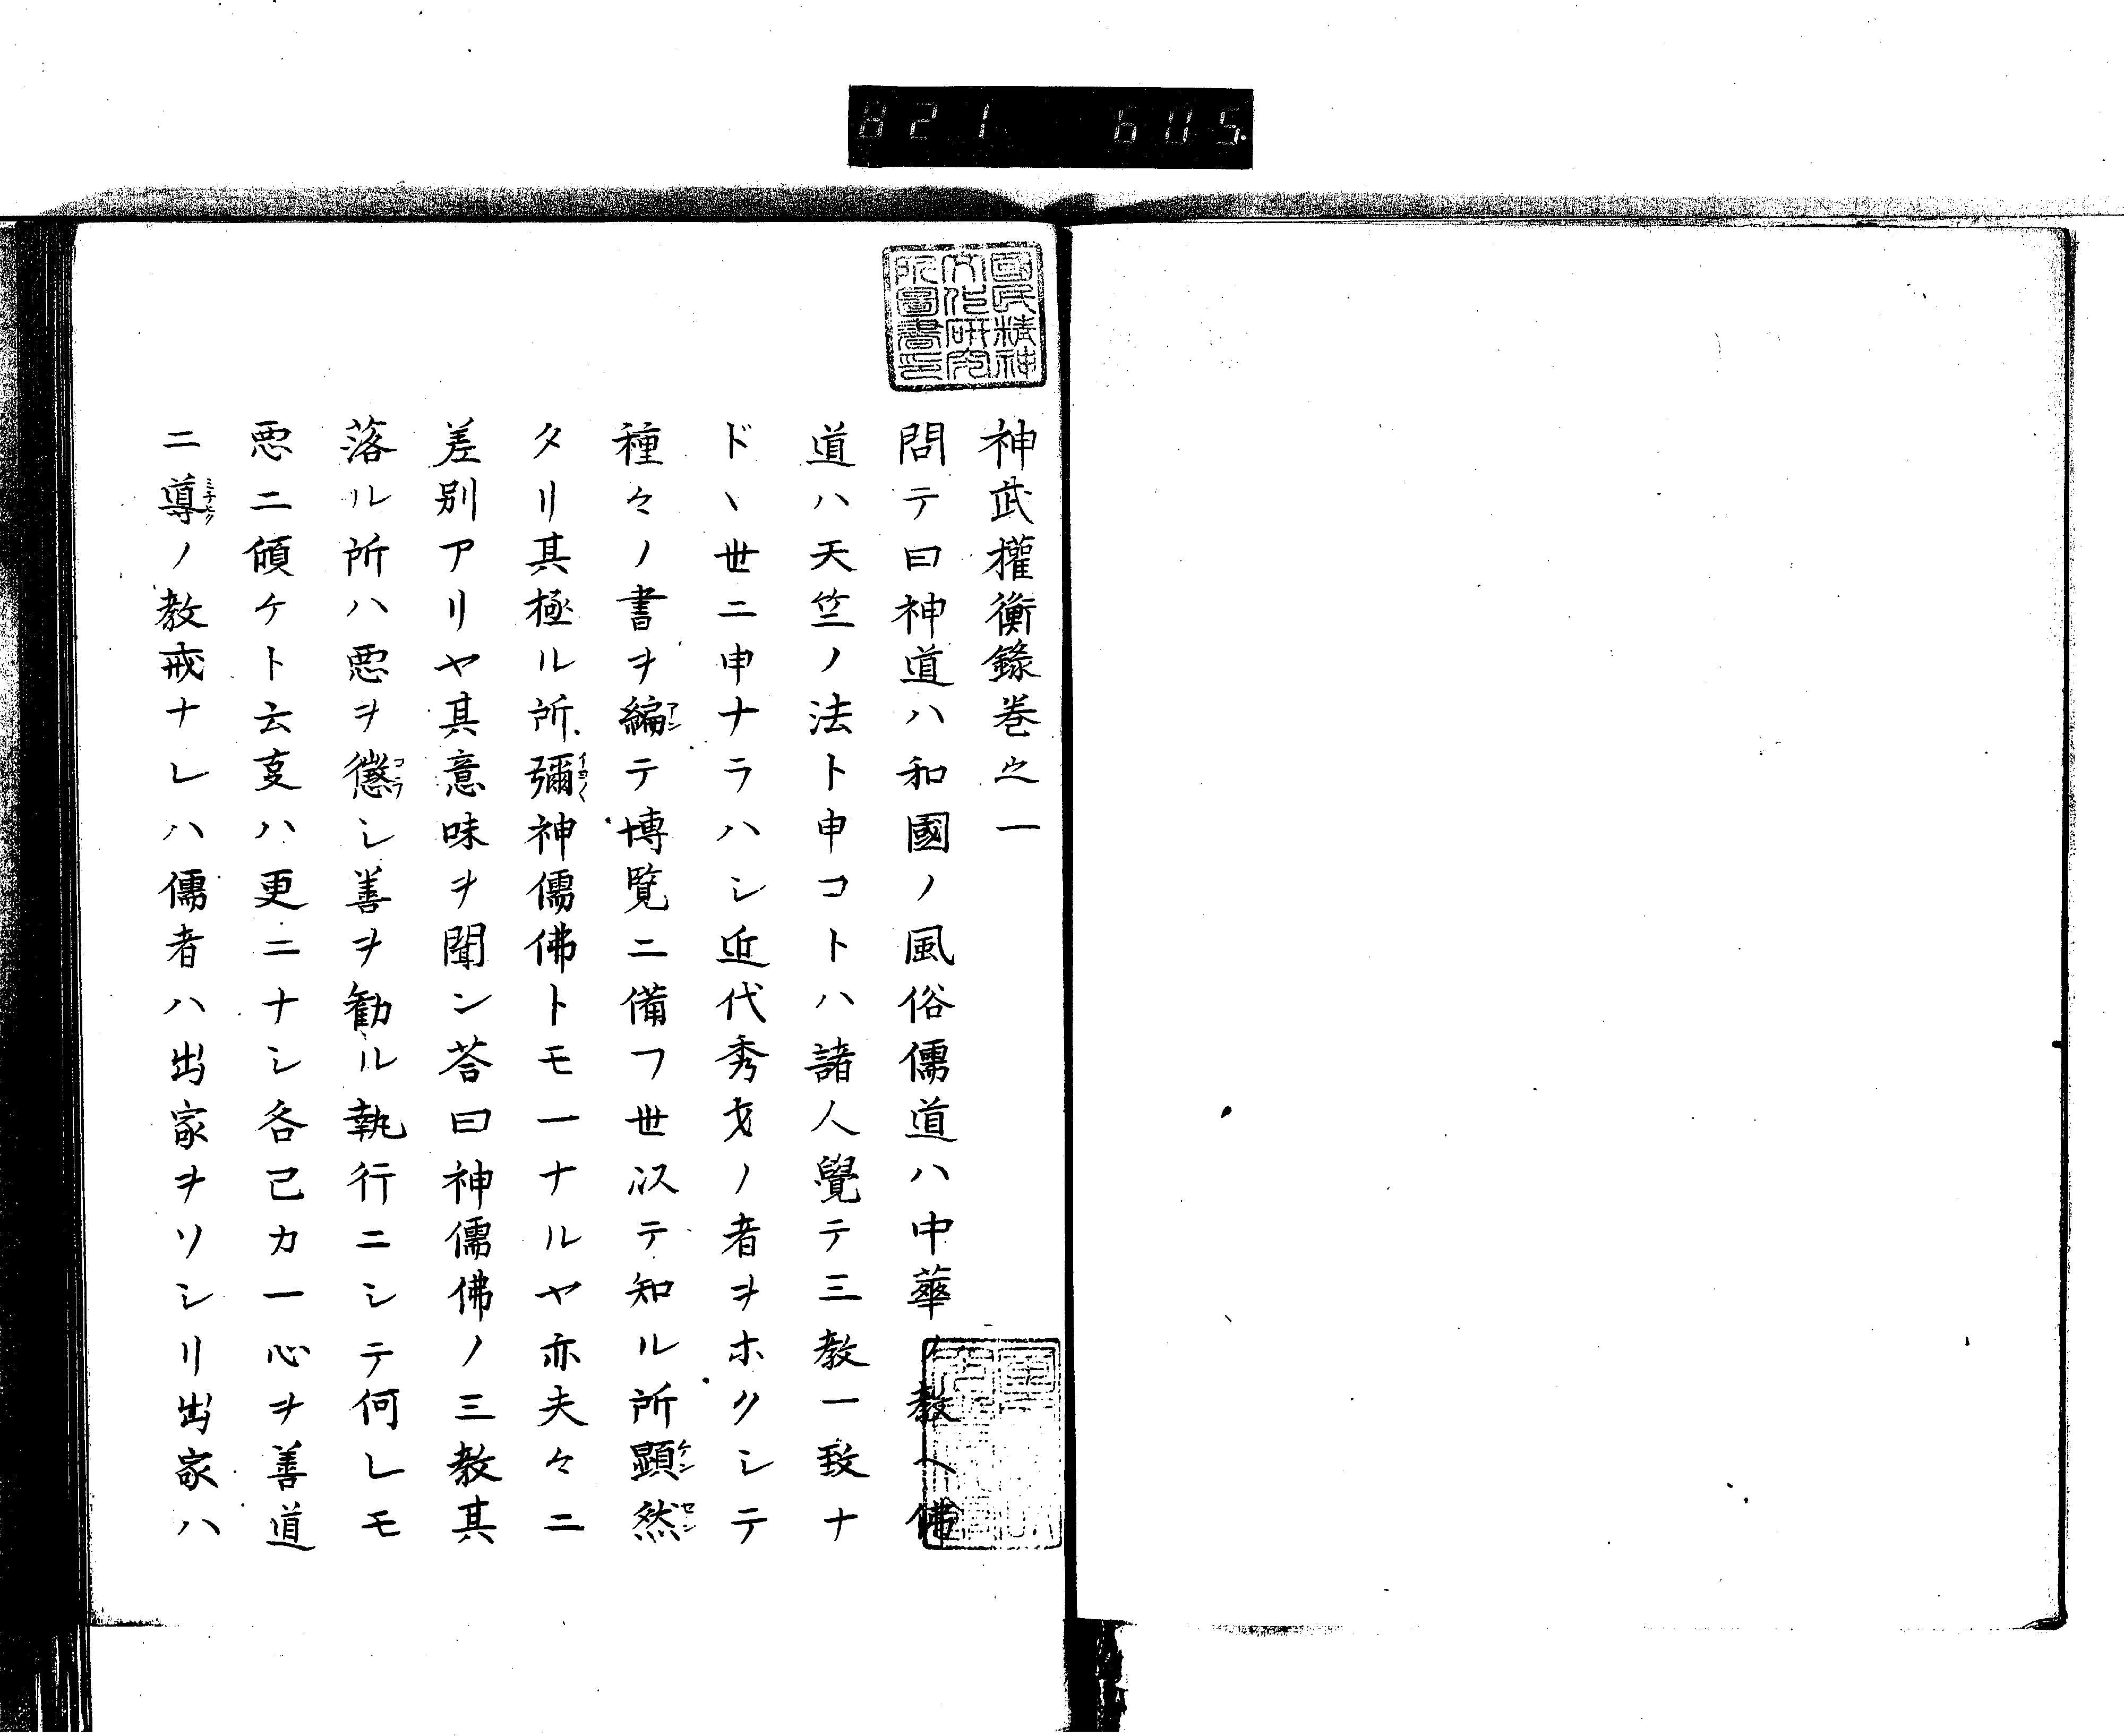 821 605
國民精神
文化研究
所圖書印
神武權衡錄巻之一
問テ曰神道ハ和國ノ風俗儒道ハ中華ノ教ヘ佛
道ハ天竺ノ法ト申コトハ諸人覺テ三教一致ナ
ドヽ世ニ申ナラハシ近代秀才ノ者ヲホクシテ
種々ノ書ヲ編アンテ博覧ニ備フ世以テ知ル所顕ケン然セン
タリ其極ル所彌イヨ〱神儒佛トモ一ナルヤ亦夫々ニ
差別アリヤ其意味ヲ聞ン荅曰神儒佛ノ三教其
落ル所ハ悪ヲ懲コラシ善ヲ勧ル執行ニシテ何レモ
悪ニ傾ケト云叓ハ更ニナシ各己カ一心ヲ善道
ニ導ミチビクノ教戒ナレハ儒者ハ出家ヲソシリ出家ハ